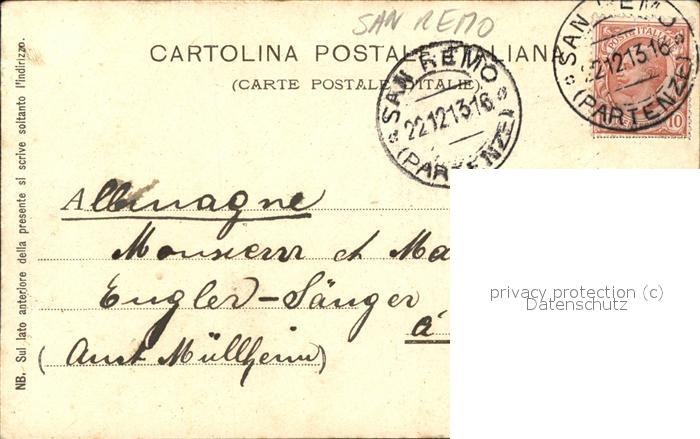 SAN REMO
CARTOLINA POSTALE ITALIANA
(CARTE POSTALE D'ITALIE)
SAN REMO
22.12.13.16
(PARTENZE)
SAN REMO
22.12.13.16
(PARTENZE)
POSTE ITALIANE
10
NB. Sul lato anteriore della presente si scrive soltanto l'indirizzo.
Allemagne
Monsieur et Ma
Engler-Sänger
à
(Amt Müllheim)
privacy protection (c)
Datenschutz